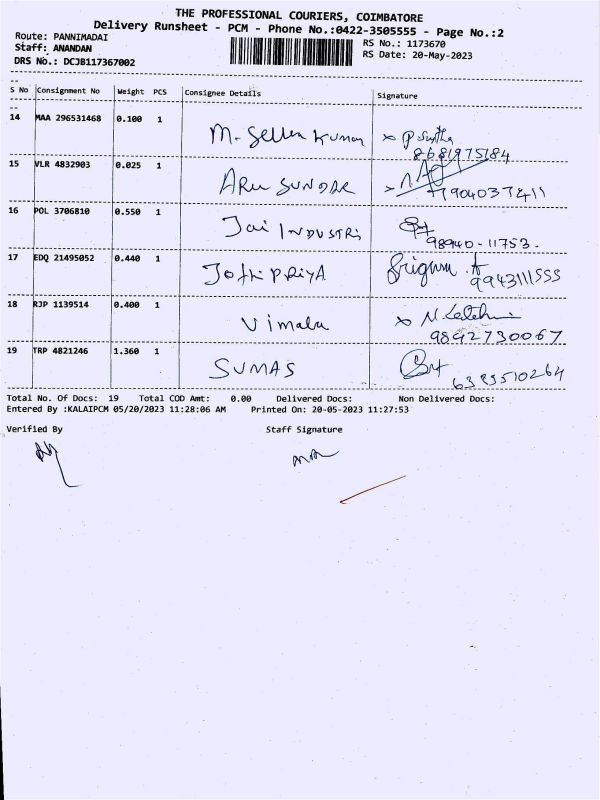 THE PROFESSIONAL COURIERS, COIMBATORE
Delivery Runsheet - PCM - Phone No.:0422-3505555 - Page No.:2
Route: PANNIMADAI
RS No.: 1173670
Staff: ANANDAN
RS Date: 20-May-2023
DRS No.: DCJB117367002
S No Consignment No Weight PCS Consignee Details Signature
14 MAA 296531468 0.100 1 M. Selva Kumar
8681975184
15 VLR 4832903 0.025 1 ARU SUNDAR
7904037411
16 POL 3706810 0.550 1 Jai INDUSTRI
98940-11753.
17 EDQ 21495052 0.440 1 Jothi PRIYA
9943111555
18 RJP 1139514 0.400 1 Vimala
9842730067
19 TRP 4821246 1.360 1 SUMAS
6383510264
Total No. Of Docs: 19 Total COD Amt: 0.00 Delivered Docs: Non Delivered Docs:
Entered By :KALAIPCM 05/20/2023 11:28:06 AM Printed On: 20-05-2023 11:27:53
Verified By Staff Signature